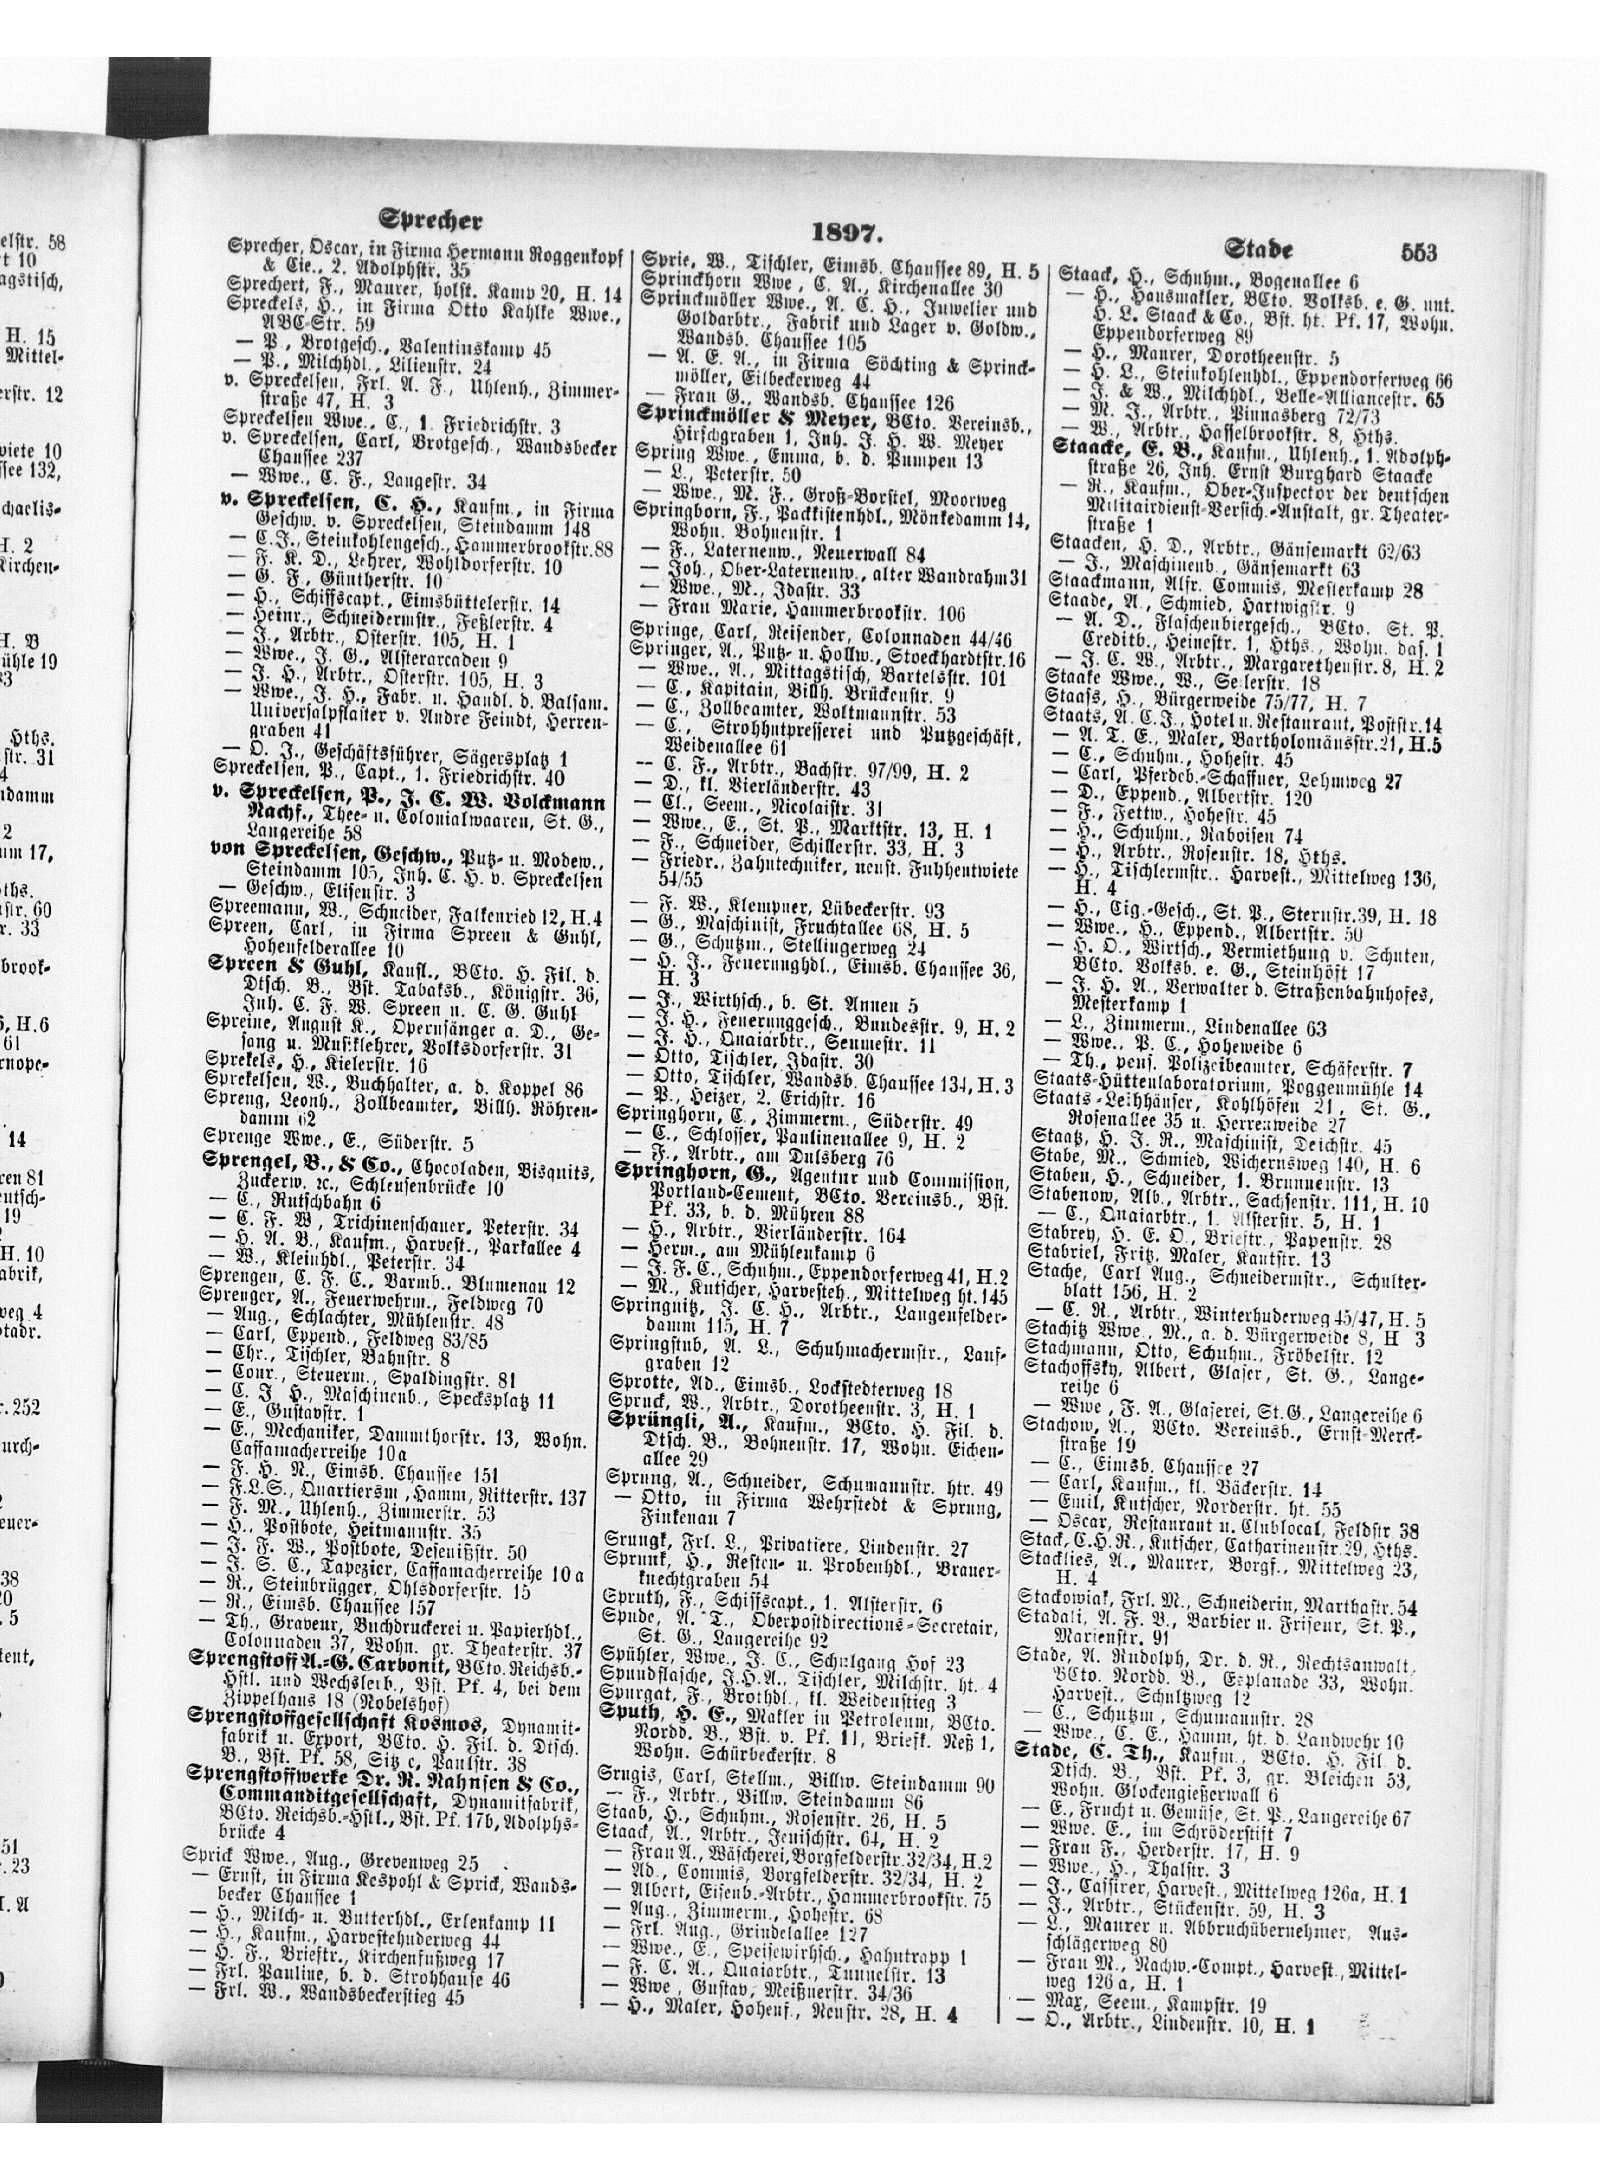 elstr. 58
rt 10
agstisch,
H. 15
Mittel-
erstr. 12
wiete 10
ssee 132,
chaelis-
H. 2
Kirchen-
H. B
ühle 19
Hths.
str. 31
ndamm
um 17,
ths.
str. 60
r. 33
brook-
5, H. 6
61
rnope-
14
ren 81
eutsch-
19
H. 10
abrik,
weg 4
otadr.
r. 252
urch-
euer-
38
20
. 5
tent,
51
r. 23
H. A
Sprecher
1897.
Stade 553
Sprecher, Oscar, in Firma Hermann Roggenkopf
& Cie., 2. Adolphstr. 35
Sprechert, F., Maurer, holst. Kamp 20, H. 14
Spreckels, H., in Firma Otto Kahlke Wwe.,
ABC-Str. 59
— P., Brotgesch., Valentinskamp 45
— P., Milchhdl., Lilienstr. 24
v. Spreckelsen, Frl. A. F., Uhlenh., Zimmer-
straße 47, H. 3
Spreckelsen Wwe., C., 1. Friedrichstr. 3
v. Spreckelsen, Carl, Brotgesch., Wandsbecker
Chaussee 237
— Wwe., C. F., Langestr. 34
v. Spreckelsen, C. H., Kaufm., in Firma
Geschw. v. Spreckelsen, Steindamm 148
— C. J., Steinkohlengesch., Hammerbrookstr. 88
— F. K. D., Lehrer, Wohldorferstr. 10
— G. F., Güntherstr. 10
— H., Schiffscapt., Eimsbüttelerstr. 14
— Heinr., Schneidermstr., Feßlerstr. 4
— J., Arbtr., Osterstr. 105, H. 1
— Wwe., J. G., Alsterarcaden 9
— J. H., Arbtr., Osterstr. 105, H. 3
— Wwe., J. H., Fabr. u. Handl. d. Balsam.
Universalpflaster v. Andre Feindt, Herren-
graben 41
— O. J., Geschäftsführer, Sägersplatz 1
Spreckelsen, P., Capt., 1. Friedrichstr. 40
v. Spreckelsen, P., J. C. W. Volckmann
Nachf., Thee- u. Colonialwaaren, St. G.,
Langereihe 58
von Spreckelsen, Geschw., Putz- u. Modew.,
Steindamm 105, Inh. C. H. v. Spreckelsen
— Geschw., Elisenstr. 3
Spreemann, W., Schneider, Falkenried 12, H. 4
Spreen, Carl, in Firma Spreen & Guhl,
Hohenfelderallee 10
Spreen & Guhl, Kaufl., BCto. H. Fil. d.
Dtsch. B., Bst. Tabaksb., Königstr. 36,
Inh. C. F. W. Spreen u. C. G. Guhl
Spreine, August K., Opernsänger a. D., Ge-
sang u. Musiklehrer, Volksdorferstr. 31
Sprekels, H., Kielerstr. 16
Sprekelsen, W., Buchhalter, a. d. Koppel 86
Spreng, Leonh., Zollbeamter, Billh. Röhren-
damm 62
Sprenge Wwe., E., Süderstr. 5
Sprengel, B., & Co., Chocoladen, Bisquits,
Zuckerw. ꝛc., Schleusenbrücke 10
— C., Rutschbahn 6
— C. F. W, Trichinenschauer, Peterstr. 34
— H. A. B., Kaufm., Harvest., Parkallee 4
— W., Kleinhdl., Peterstr. 34
Sprengen, C. F. C., Barmb., Blumenau 12
Sprenger, A., Feuerwehrm., Feldweg 70
— Aug., Schlachter, Mühlenstr. 48
— Carl, Eppend., Feldweg 83/85
— Chr., Tischler, Bahnstr. 8
— Conr., Steuerm., Spaldingstr. 81
— C. J. H., Maschinenb., Specksplatz 11
— E., Gustavstr. 1
— E., Mechaniker, Dammthorstr. 13, Wohn.
Caffamacherreihe 10a
— F. H. R., Eimsb. Chaussee 151
— F. L. S., Quartiersm., Hamm, Ritterstr. 137
— F. M., Uhlenh., Zimmerstr. 53
— H., Postbote, Heitmannstr. 35
— J. F. W., Postbote, Desenißstr. 50
— J. S. C., Tapezier, Caffamacherreihe 10a
— R., Steinbrügger, Ohlsdorferstr. 15
— R., Eimsb. Chaussee 157
— Th., Graveur, Buchdruckerei u. Papierhdl.,
Colonnaden 37, Wohn. gr. Theaterstr. 37
Sprengstoff A.-G. Carbonit, BCto. Reichsb.-
Hstl. und Wechslerb., Bst. Pf. 4, bei dem
Zippelhaus 18 (Nobelshof)
Sprengstoffgesellschaft Kosmos, Dynamit-
fabrik u. Export, BCto. H. Fil. d. Dtsch.
B., Bst. Pf. 58, Sitz c, Paulstr. 38
Sprengstoffwerke Dr. R. Nahnsen & Co.,
Commanditgesellschaft, Dynamitfabrik,
BCto. Reichsb.-Hstl., Bst. Pf. 17b, Adolphs-
brücke 4
Sprick Wwe., Aug., Grevenweg 25
— Ernst, in Firma Kespohl & Sprick, Wands-
becker Chaussee 1
— H., Milch- u. Butterhdl., Erlenkamp 11
— H., Kaufm., Harvestehuderweg 44
— H. F., Brieftr., Kirchenfußweg 17
— Frl. Pauline, b. d. Strohhause 46
— Frl. W., Wandsbeckerstieg 45
Sprie, W., Tischler, Eimsb. Chaussee 89, H. 5
Sprinckhorn Wwe, C. A., Kirchenallee 30
Sprinckmöller Wwe., A. C. H., Juwelier und
Goldarbtr., Fabrik und Lager v. Goldw.,
Wandsb. Chaussee 105
— A. E. A., in Firma Söchting & Sprinck-
möller, Eilbeckerweg 44
— Frau G., Wandsb. Chaussee 126
Sprinckmöller & Meyer, BCto. Vereinsb.,
Hirschgraben 1, Inh. J. H. W. Meyer
Spring Wwe., Emma, b. d. Pumpen 13
— L., Peterstr. 50
— Wwe., M. F., Groß-Borstel, Moorweg
Springborn, F., Packkistenhdl., Mönkedamm 14,
Wohn. Bohnenstr. 1
— F., Laternenw., Neuerwall 84
— Joh., Ober-Laternenw., alter Wandrahm 31
— Wwe., M., Idastr. 33
— Frau Marie, Hammerbrookstr. 106
Springe, Carl, Reisender, Colonnaden 44/46
Springer, A., Putz- u. Hollw., Stoeckhardtstr. 16
— Wwe., A., Mittagstisch, Bartelsstr. 101
— C., Kapitain, Billh. Brückenstr. 9
— C., Zollbeamter, Woltmannstr. 53
— C., Strohhutpresserei und Putzgeschäft,
Weidenallee 61
— C. F., Arbtr., Bachstr. 97/99, H. 2
— D., kl. Vierländerstr. 43
— Cl., Seem., Nicolaistr. 31
— Wwe., E., St. P., Marktstr. 13, H. 1
— F., Schneider, Schillerstr. 33, H. 3
— Friedr., Zahntechniker, neust. Fuhlentwiete
54/55
— F. W., Klempner, Lübeckerstr. 93
— G., Maschinist, Fruchtallee 68, H. 5
— G., Schutzm., Stellingerweg 24
— H. J., Feuerunghdl., Eimsb. Chaussee 36,
H. 3
— J., Wirthsch., b. St. Annen 5
— J. H., Feuerunggesch., Bundesstr. 9, H. 2
— J. H., Quaiarbtr., Seumestr. 11
— Otto, Tischler, Idastr. 30
— Otto, Tischler, Wandsb. Chaussee 134, H. 3
— P., Heizer, 2. Erichstr. 16
Springhorn, C., Zimmerm., Süderstr. 49
— C., Schlosser, Paulinenallee 9, H. 2
— F., Arbtr., am Dulsberg 76
Springhorn, G., Agentur und Commission,
Portland-Cement, BCto. Vereinsb., Bst.
Pf. 33, b. d. Mühren 88
— H., Arbtr., Vierländerstr. 164
— Herm., am Mühlenkamp 6
— J. F. C., Schuhm., Eppendorferweg 41, H. 2
— M., Kutscher, Harvesteh., Mittelweg ht. 145
Springnitz, J. C. H., Arbtr., Langenfelder-
damm 115, H. 7
Springstub, A. L., Schuhmachermstr., Lauf-
graben 12
Sprotte, Ad., Eimsb., Lockstedterweg 18
Spruck, W., Arbtr., Dorotheenstr. 3, H. 1
Sprüngli, A., Kaufm., BCto. H. Fil. d.
Dtsch. B., Bohnenstr. 17, Wohn. Eichen-
allee 29
Sprung, A., Schneider, Schumannstr. htr. 49
— Otto, in Firma Wehrstedt & Sprung,
Finkenau 7
Srungk, Frl. L., Privatiere, Lindenstr. 27
Sprunk, H., Resten- u. Probenhdl., Brauer-
knechtgraben 54
Spruth, F., Schiffscapt., 1. Alsterstr. 6
Spude, A. T., Oberpostdirections-Secretair,
St. G., Langereihe 92
Spühler, Wwe., J. C., Schulgang Hof 23
Spundflasche, J. H. A., Tischler, Milchstr. ht. 4
Spurgat, F., Brothdl., kl. Weidenstieg 3
Sputh, H. E., Makler in Petroleum, BCto.
Nordd. B., Bst. v. Pf. 11, Briefk. Neß 1,
Wohn. Schürbeckerstr. 8
Srugis, Carl, Stellm., Billw. Steindamm 90
— F., Arbtr., Billw. Steindamm 86
Staab, H., Schuhm., Rosenstr. 26, H. 5
Staack, A., Arbtr., Jenischstr. 64, H. 2
— Frau A., Wäscherei, Borgfelderstr. 32/34, H. 2
— Ad., Commis, Borgfelderstr. 32/34, H. 2
— Albert, Eisenb.-Arbtr., Hammerbrookstr. 75
— Aug., Zimmerm., Hohestr. 68
— Frl. Aug., Grindelallee 127
— Wwe., E., Speisewirthsch., Hahntrapp 1
— F. C. A., Quaiarbtr., Tunnelstr. 13
— Wwe, Gustav, Meißnerstr. 34/36
— H., Maler, Hohenf., Neustr. 28, H. 4
Staack, H., Schuhm., Bogenallee 6
— H., Hausmakler, BCto. Volksb. e. G. unt.
H. L. Staack & Co., Bst. ht. Pf. 17, Wohn.
Eppendorferweg 89
— H., Maurer, Dorotheenstr. 5
— H. L., Steinkohlenhdl., Eppendorferweg 66
— J. & W., Milchhdl., Belle-Alliancestr. 65
— M. J., Arbtr., Pinnasberg 72/73
— W., Arbtr., Hasselbrookstr. 8, Hths.
Staacke, E. B., Kaufm., Uhlenh., 1. Adolph-
straße 26, Inh. Ernst Burghard Staacke
— R., Kaufm., Ober-Inspector der deutschen
Militairdienst-Versich.-Anstalt, gr. Theater-
straße 1
Staacken, H. D., Arbtr., Gänsemarkt 62/63
— J., Maschinenb., Gänsemarkt 63
Staackmann, Alfr. Commis, Mesterkamp 28
Staade, A., Schmied, Hartwigstr. 9
— A. D., Flaschenbiergesch., BCto. St. P.
Creditb., Heinestr. 1, Hths., Wohn. das. 1
— J. C. W., Arbtr., Margarethenstr. 8, H. 2
Staake Wwe., W., Seilerstr. 18
Staass, H., Bürgerweide 75/77, H. 7
Staats, A. C. J., Hotel u. Restaurant, Poststr. 14
— A. T. E., Maler, Bartholomäusstr. 21, H. 5
— C., Schuhm., Hohestr. 45
— Carl, Pferdeb.-Schaffner, Lehmweg 27
— D., Eppend., Albertstr. 120
— F., Fettw., Hohestr. 45
— H., Schuhm., Raboisen 74
— H., Arbtr., Rosenstr. 18, Hths.
— H., Tischlermstr.. Harvest., Mittelweg 136,
H. 4
— H., Cig.-Gesch., St. P., Sternstr. 39, H. 18
— Wwe., H., Eppend., Albertstr. 50
— H. O., Wirtsch., Vermiethung v. Schuten,
BCto. Volksb. e. G., Steinhöft 17
— J. H. A., Verwalter d. Straßenbahnhofes,
Mesterkamp 1
— L., Zimmerm., Lindenallee 63
— Wwe., P. C., Hoheweide 6
— Th., pens. Polizeibeamter, Schäferstr. 7
Staats-Hüttenlaboratorium, Poggenmühle 14
Staats-Leihhäuser, Kohlhöfen 21, St. G.,
Rosenallee 35 u. Herrenweide 27
Staatz, H. J. R., Maschinist, Deichstr. 45
Stabe, M., Schmied, Wichernsweg 140, H. 6
Staben, H., Schneider, 1. Brunnenstr. 13
Stabenow, Alb., Arbtr., Sachsenstr. 111, H. 10
— C., Quaiarbtr., 1. Alsterstr. 5, H. 1
Stabrey, H. E. O., Brieftr., Papenstr. 28
Stabriel, Fritz, Maler, Kantstr. 13
Stache, Carl Aug., Schneidermstr., Schulter-
blatt 156, H. 2
— C. R., Arbtr., Winterhuderweg 45/47, H. 5
Stachitz Wwe., M., a. d. Bürgerweide 8, H 3
Stachmann, Otto, Schuhm., Fröbelstr. 12
Stachoffsky, Albert, Glaser, St. G., Lange-
reihe 6
— Wwe, F. A., Glaserei, St. G., Langereihe 6
Stachow, A., BCto. Vereinsb., Ernst-Merck-
straße 19
— C., Eimsb. Chaussee 27
— Carl, Kaufm., kl. Bäckerstr. 14
— Emil, Kutscher, Norderstr. ht. 55
— Oscar, Restaurant u. Clublocal, Feldstr. 38
Stack, C. H. R., Kutscher, Catharinenstr. 29, Hths.
Stacklies, A., Maurer, Borgf., Mittelweg 23,
H. 4
Stackowiak, Frl. M., Schneiderin, Marthastr. 54
Stadali, A. F. B., Barbier u. Friseur, St. P.,
Marienstr. 91
Stade, A. Rudolph, Dr. d. R., Rechtsanwalt,
BCto. Nordd. B., Esplanade 33, Wohn.
Harvest., Schultzweg 12
— C., Schutzm., Schumannstr. 28
— Wwe., C. E., Hamm, ht. d. Landwehr 10
Stade, C. Th., Kaufm., BCto. H. Fil d.
Dtsch. B., Bst. Pf. 3, gr. Bleichen 53,
Wohn. Glockengießerwall 6
— E., Frucht u. Gemüse, St. P., Langereihe 67
— Wwe. E., im Schröderstift 7
— Frau F., Herderstr. 17, H. 9
— Wwe., H., Thalstr. 3
— J., Cassirer, Harvest., Mittelweg 126a, H. 1
— J., Arbtr., Stückenstr. 59, H. 3
— L., Maurer u. Abbruchübernehmer, Aus-
schlägerweg 80
— Frau M., Nachw.-Compt., Harvest., Mittel-
weg 126a, H. 1
— Max, Seem., Kampstr. 19
— O., Arbtr., Lindenstr. 10, H. 1